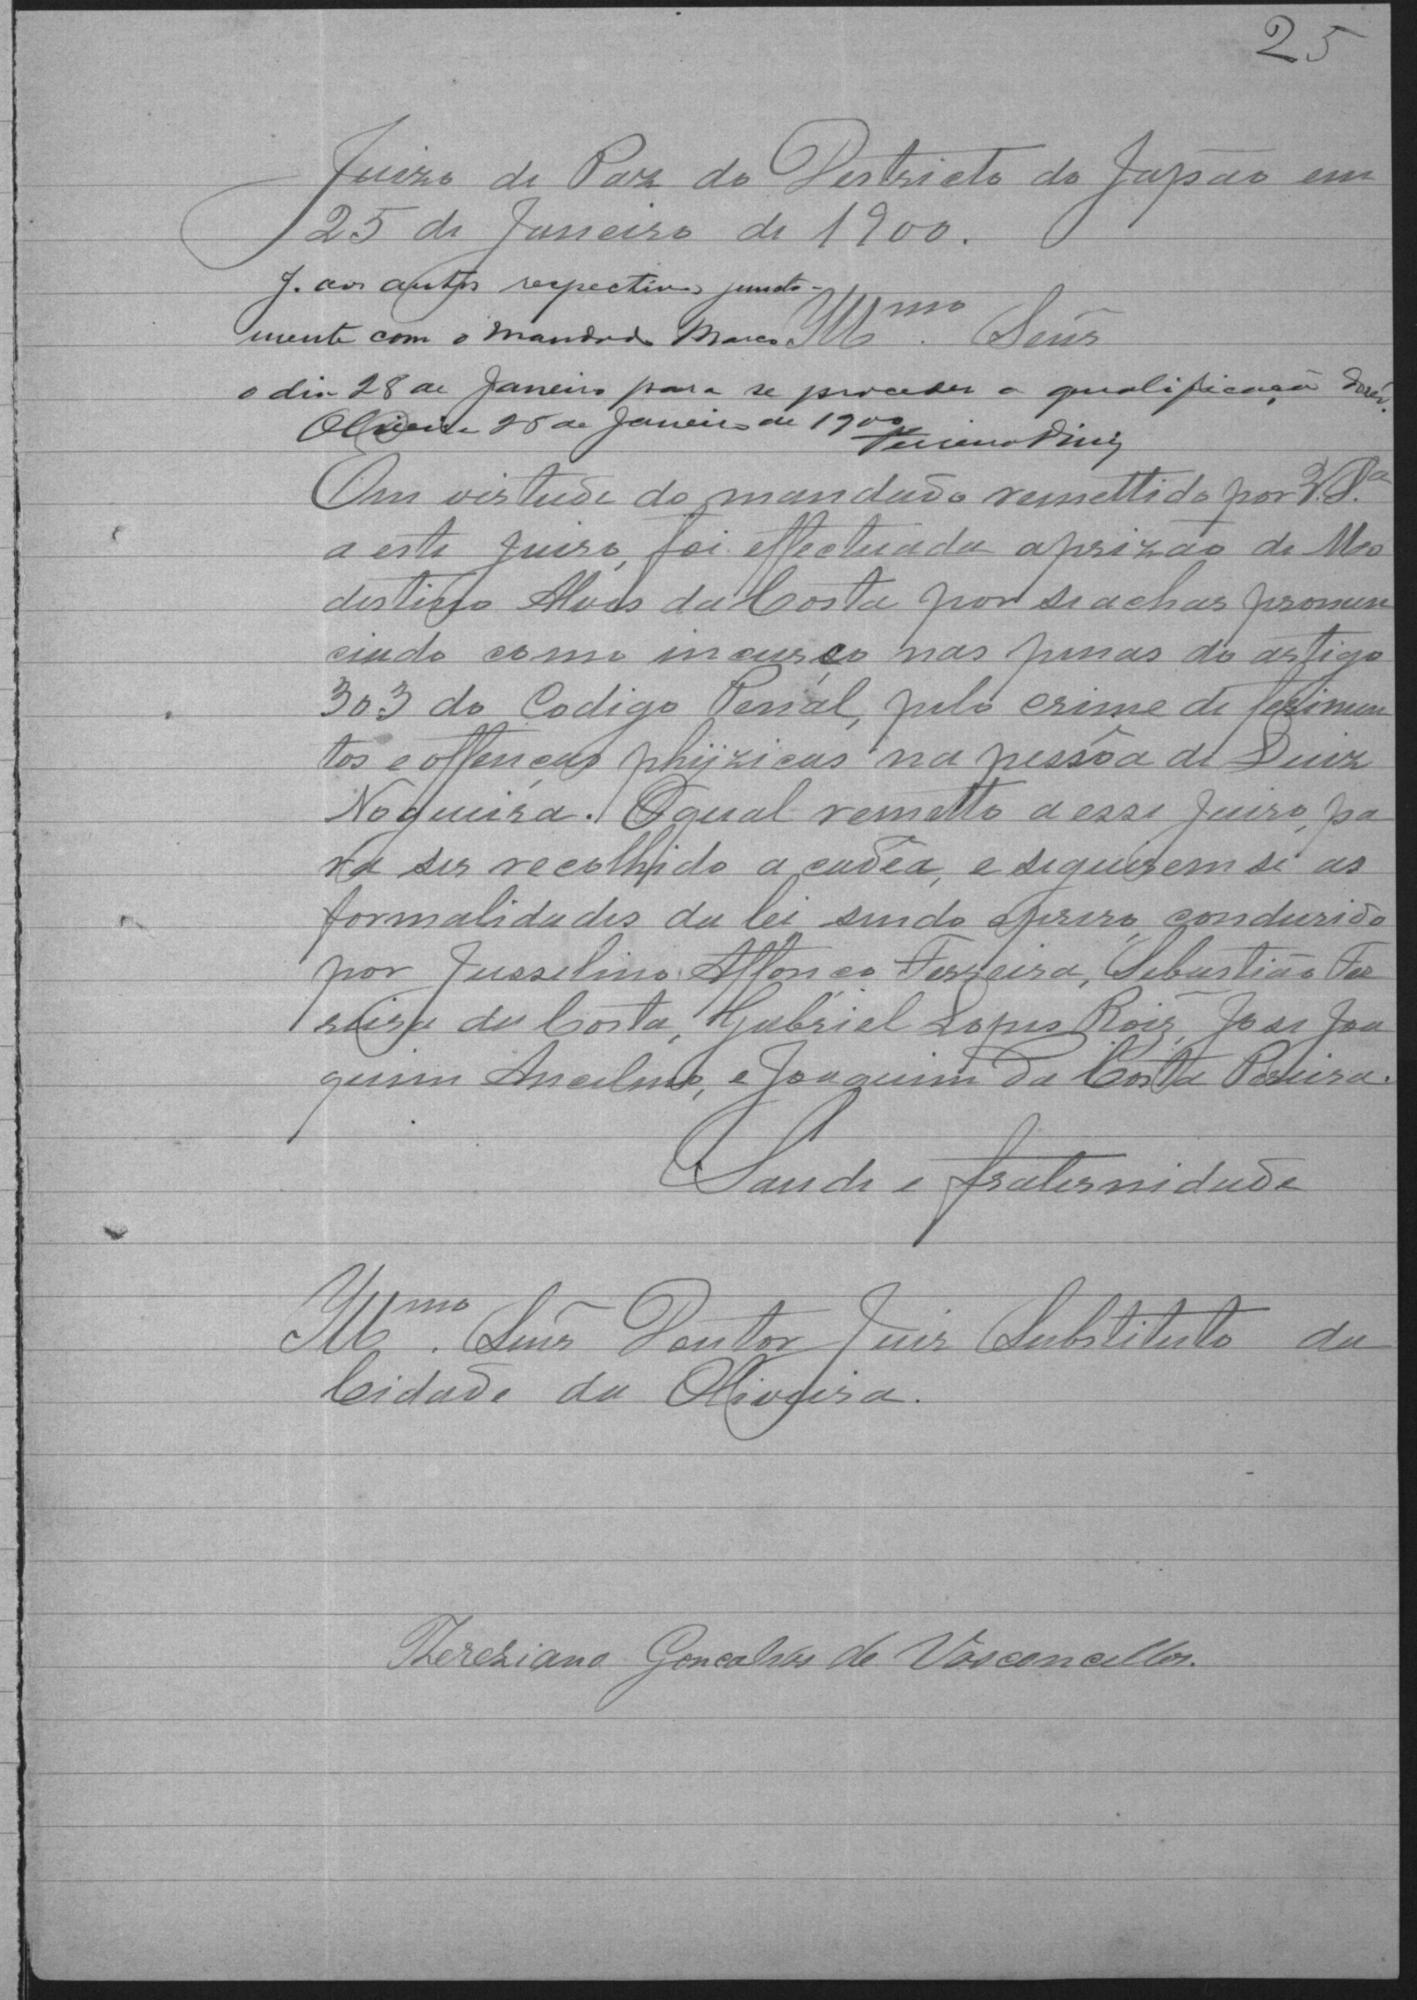 25
Juizo de Paz do Destricto do Japão em
25 de Janeiro de 1900.
J. aos autos respectivos junta-
mente com o mandado Marco
Illmo. Senr
o dia 28 de Janeiro para se proceder a qualificação do réo.
Oliveira 25 de Janeiro de 1900
Em virtude do mandado remettido por V.Sa
a este Juizo, foi effectuada aprizão de Mo
destino Alves da Costa por se achar pronun
ciado como incurço nas penas do artigo
303 do Codigo Penal, pelo crime de ferimen
tos e offenças phyzicas na pessôa de Luiz
Nogueira. Oqual remetto a esse Juizo, pa
ra ser recolhido a cadêa, e seguirem se as
formalidades da lei sendo oprezo, conduzido
por Jusselino Affonço Ferreira, Sebastião Fer
reira da Costa, Gabriel Lopes Roiz, José Joa
quim Ancelmo, e Joaquim da Costa Pereira.
Saude e fraternidade
Illmo. Senr Doutor Juiz Substituto da
Cidade da Oliveira.
Thereziano Goncalves de Vasconcellos.